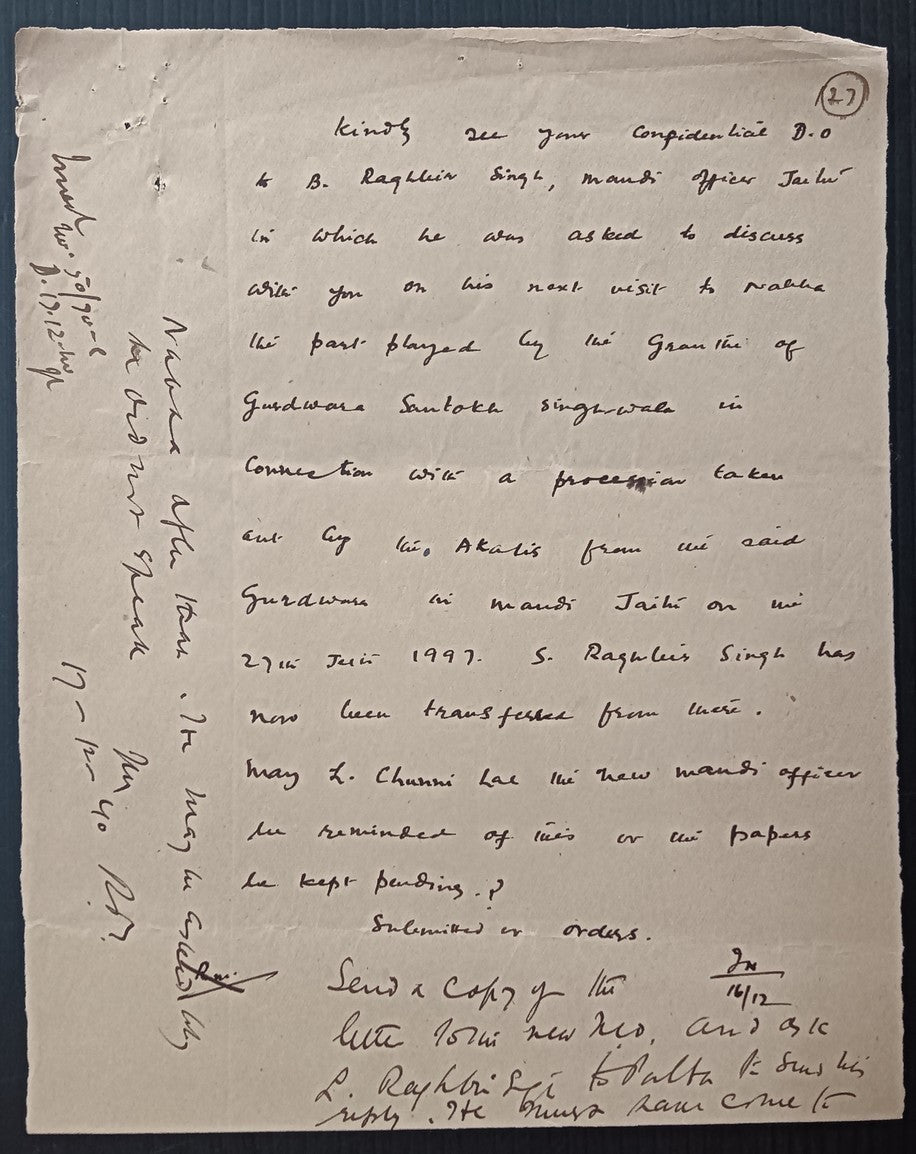 27
Kindly see your confidential D.O
to B. Raghbir Singh, Mandi officer Jaito
in which he was asked to discuss
with you on his next visit to Nabha
the part played by the Granthi of
Gurdwara Santokh Singh-wala in
connection with a procession taken
out by the Akalis from the said
Gurdwara in Mandi Jaito on the
27th 1997. S. Raghbir Singh has
now been transferred from there.
May L. Chunni Lal the new Mandi officer
be reminded of this or the papers
be kept pending.?
Submitted for orders.
16/12
Send a copy of the
letter to the new M.O. and ask
S. Raghbir Singh to send his
reply. He must have come to
Nabha after that. He may be asked why
he did not speak
17-12-40